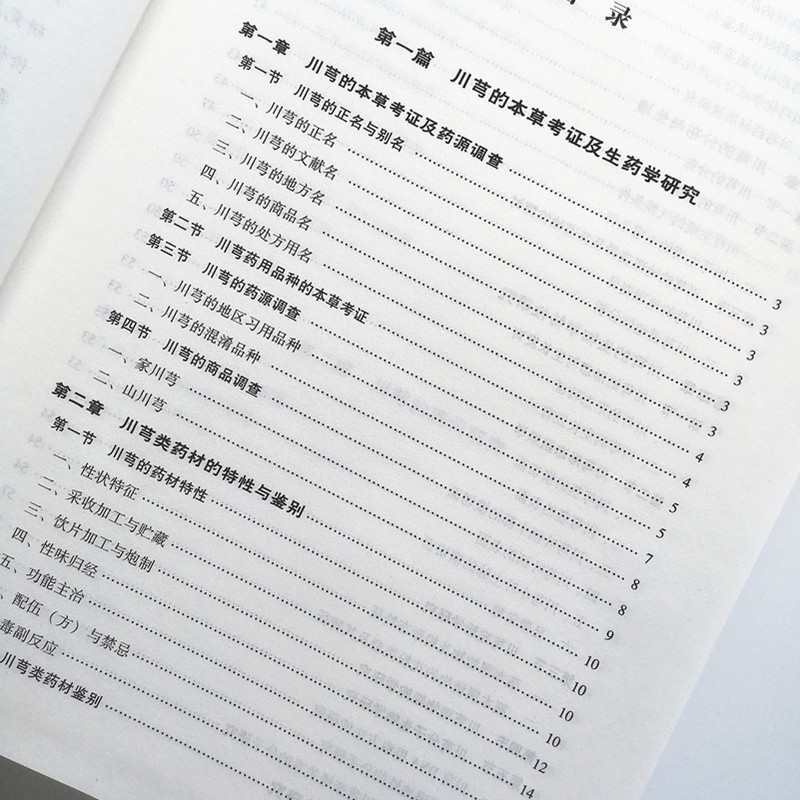 目 录
第一篇 川芎的本草考证及生药学研究
第一章 川芎的本草考证及药源调查 ………… 3
第一节 川芎的正名与别名 ………… 3
一、川芎的正名 ………… 3
二、川芎的文献名 ………… 3
三、川芎的地方名 ………… 3
四、川芎的商品名 ………… 3
五、川芎的处方用名 ………… 4
第二节 川芎药用品种的本草考证 ………… 4
第三节 川芎的药源调查 ………… 5
一、川芎的地区习用品种 ………… 5
二、川芎的混淆品种 ………… 7
第四节 川芎的商品调查 ………… 8
一、家川芎 ………… 8
二、山川芎 ………… 9
第二章 川芎类药材的特性与鉴别 ………… 10
第一节 川芎的药材特性 ………… 10
一、性状特征 ………… 10
二、采收加工与贮藏 ………… 10
三、饮片加工与炮制 ………… 12
四、性味归经 ………… 14
五、功能主治 …………
、配伍（方）与禁忌 …………
毒副反应 …………
川芎类药材鉴别 …………